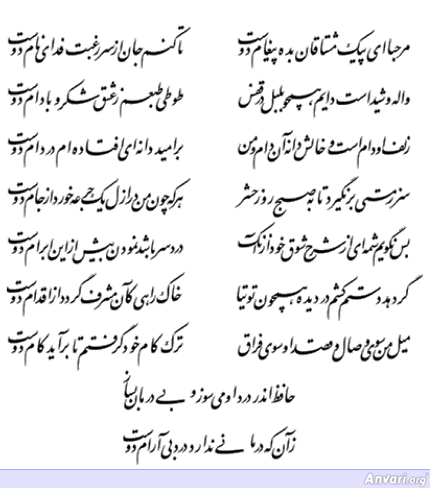 مرحبا ای پیک مشتاقان بده پیغام دوست تا کنم جان از سر رغبت فدای نام دوست
واله و شیداست دایم همچو بلبل در قفس طوطی طبعم ز عشق شکر و بادام دوست
زلف او دام است و خالش دانه آن دام و من بر امید دانه‌ای افتاده‌ام در دام دوست
سر ز مستی برنگیرد تا به صبح روز حشر هر که چون من در ازل یک جرعه خورد از جام دوست
بس نگویم شمه‌ای از شرح شوق خود از آنک دردسر باشد نمودن بیش از این ابرام دوست
گر دهد دستم کشم در دیده همچون توتیا خاک راهی کآن مشرف گردد از اقدام دوست
میل من سوی وصال و قصد او سوی فراق ترک کام خود گرفتم تا برآید کام دوست
حافظ اندر درد او می‌سوز و بی‌درمان بساز
زآن که درمانی ندارد درد بی‌آرام دوست
Anvari.org